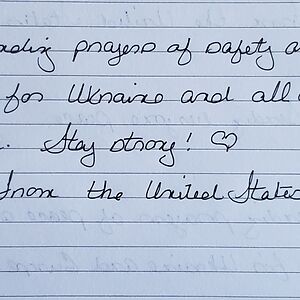 nding prayers of safety a
for Ukraine and all
. Stay strong! ♡
From the United States